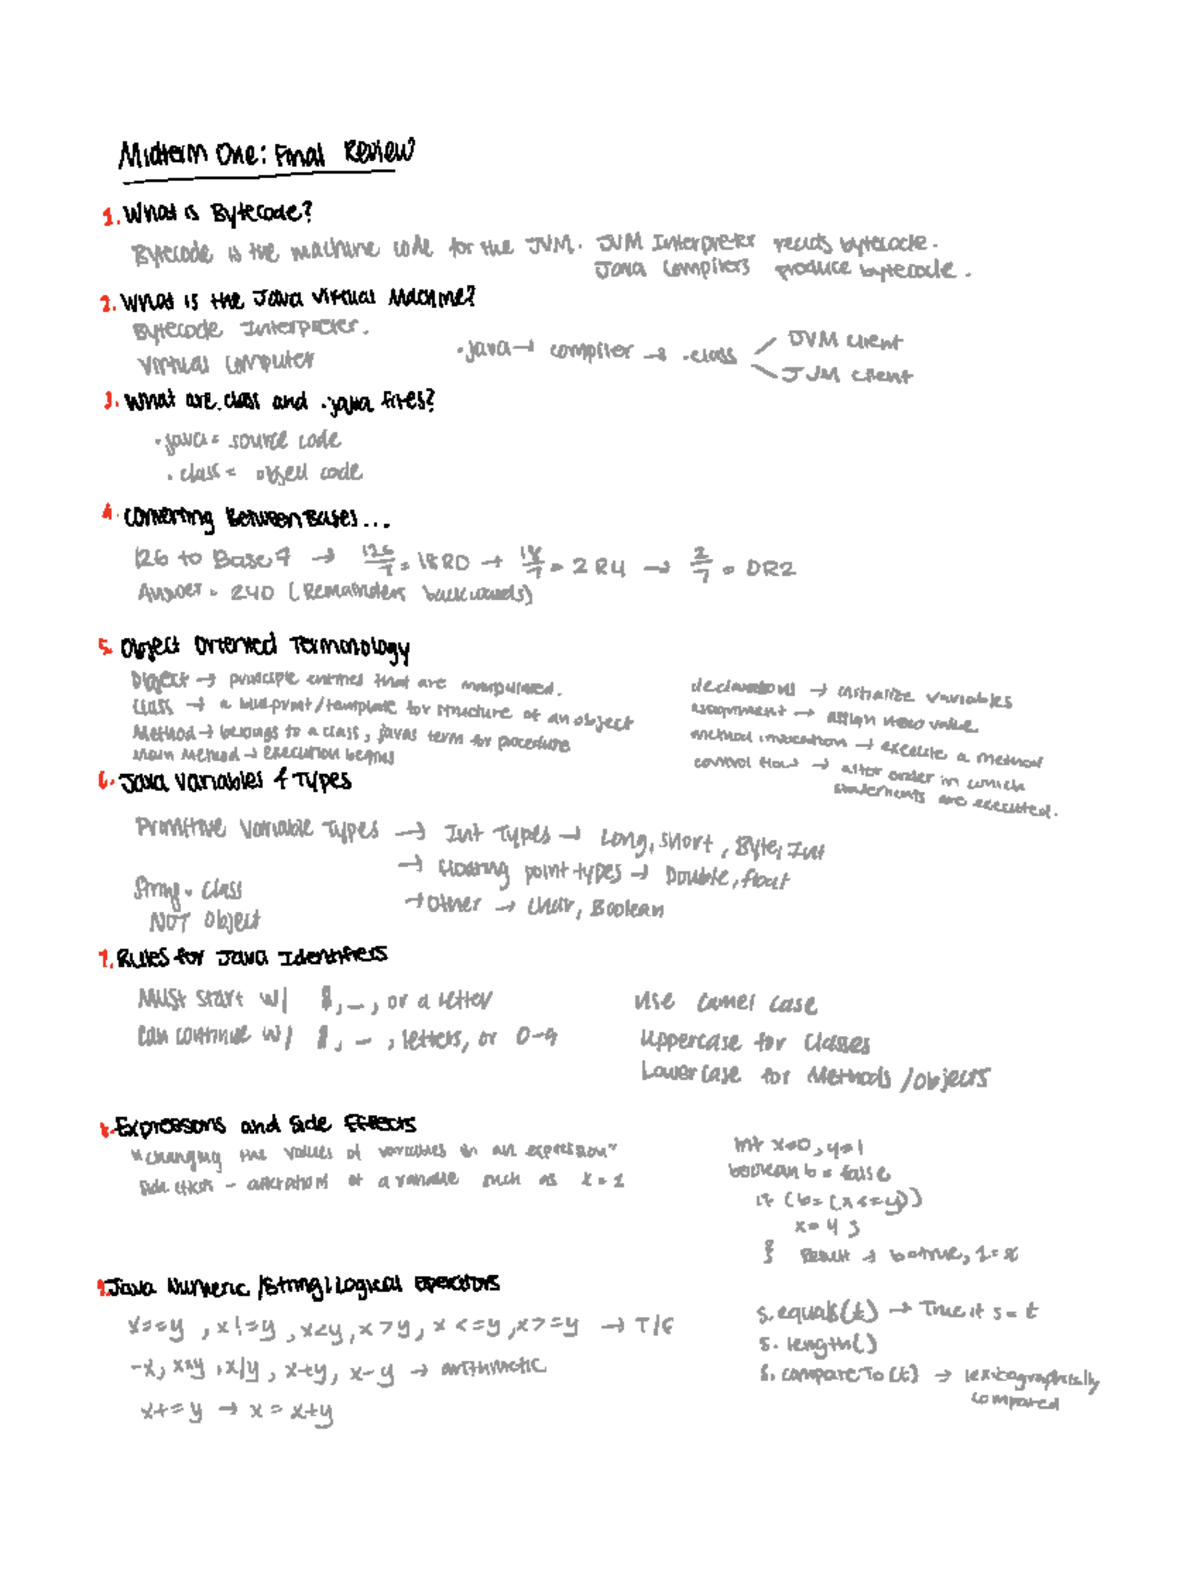 Midterm One: Final Review
1. What is Bytecode?
Bytecode is the machine code for the JVM. JVM Interpreter reads bytecode.
Java Compilers produce bytecode.
2. What is the Java Virtual Machine?
Bytecode Interpreter.
Virtual Computer
.java → compiler → .class
JVM client
JJM client
3. What are .class and .java files?
.java = source code
.class = object code
4. Converting Between Bases...
126 to Base 7 → 126/7 = 18R0 → 18/7 = 2 R4 → 2/7 = 0R2
Answer = 240 (Remainders backwards)
5. Object Oriented Terminology
Object → principle entities that are manipulated.
Class → a blueprint/template for structure of an object
Method → belongs to a class, javas term for procedure
Main Method → execution begins
declarations → initialize variables
assignment → assign new value
method invocation → execute a method
control flow → alter order in which
statements are executed.
6. Java Variables & Types
Primitive Variable Types → Int Types → Long, Short, Byte, Int
→ Floating point types → Double, float
→ Other → Char, Boolean
String = class
NOT object
7. Rules for Java Identifiers
Must start w/ $, _, or a letter
Can continue w/ $, _, letters, or 0-9
Use Camel Case
Uppercase for Classes
Lower Case for Methods /objects
8. Expressions and Side Effects
"changing the values of variables in an expression"
Side effects - alteration of a variable such as x = 2
int x=0, y=1
boolean b = false
if (b= (x<=y))
x= 4;
} Result →
9. Java Numeric /String/Logical operators
x==y , x!=y , x<y, x>y, x <=y ,x>=y → T/F
-x, x*y , x/y , x+y, x-y → arithmetic
x+=y → x = x+y
s.equals(t) → True if s=t
s.length()
s.compareTo(t) → lexicographically
compared